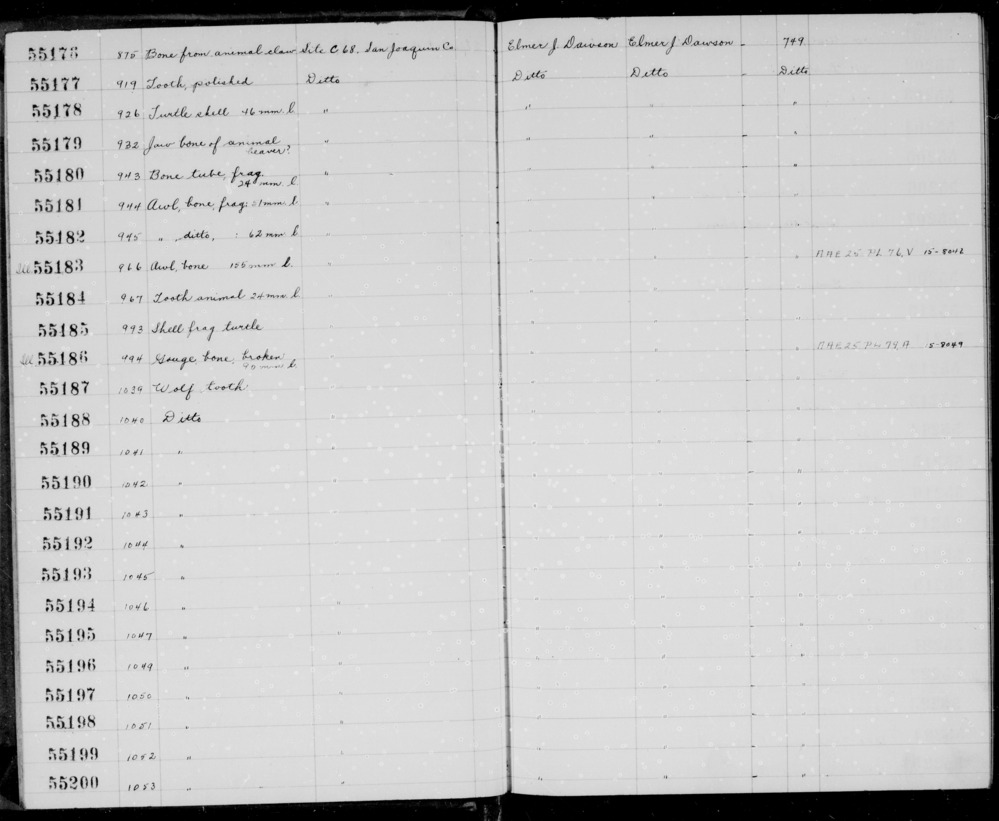 55176 875 Bone from animal claw Site C 68. San Joaquin Co Elmer J Dawson Elmer J Dawson - 749
55177 919 Tooth, polished Ditto Ditto Ditto - Ditto
55178 926 Turtle shell 46 mm. l. " " " - "
55179 932 Jaw bone of animal " " " - "
beaver?
55180 943 Bone tube, frag. " " " - "
24 mm. l
55181 944 Awl, bone, frag: 51 mm. l " " " - "
55182 945 " ditto, : 62 mm l " " " - "
Ill 55183 966 Awl, bone 155 mm l. " " " - " AAE 25 PL 76, V 15-8042
55184 967 Tooth animal 24 mm. l. " " " - "
55185 993 Shell frag turtle " " " - "
Ill 55186 994 Gouge, bone, broken " " " - " AAE 25 PL 78 A 15-8049
90 mm l.
55187 1039 Wolf tooth " " " - "
55188 1040 Ditto " " " - "
55189 1041 " " " " - "
55190 1042 " " " " - "
55191 1043 " " " " - "
55192 1044 " " " " - "
55193 1045 " " " " - "
55194 1046 " " " " - "
55195 1047 " " " " - "
55196 1049 " " " " - "
55197 1050 " " " " - "
55198 1051 " " " " - "
55199 1052 " " " " - "
55200 1053 " " " " - "